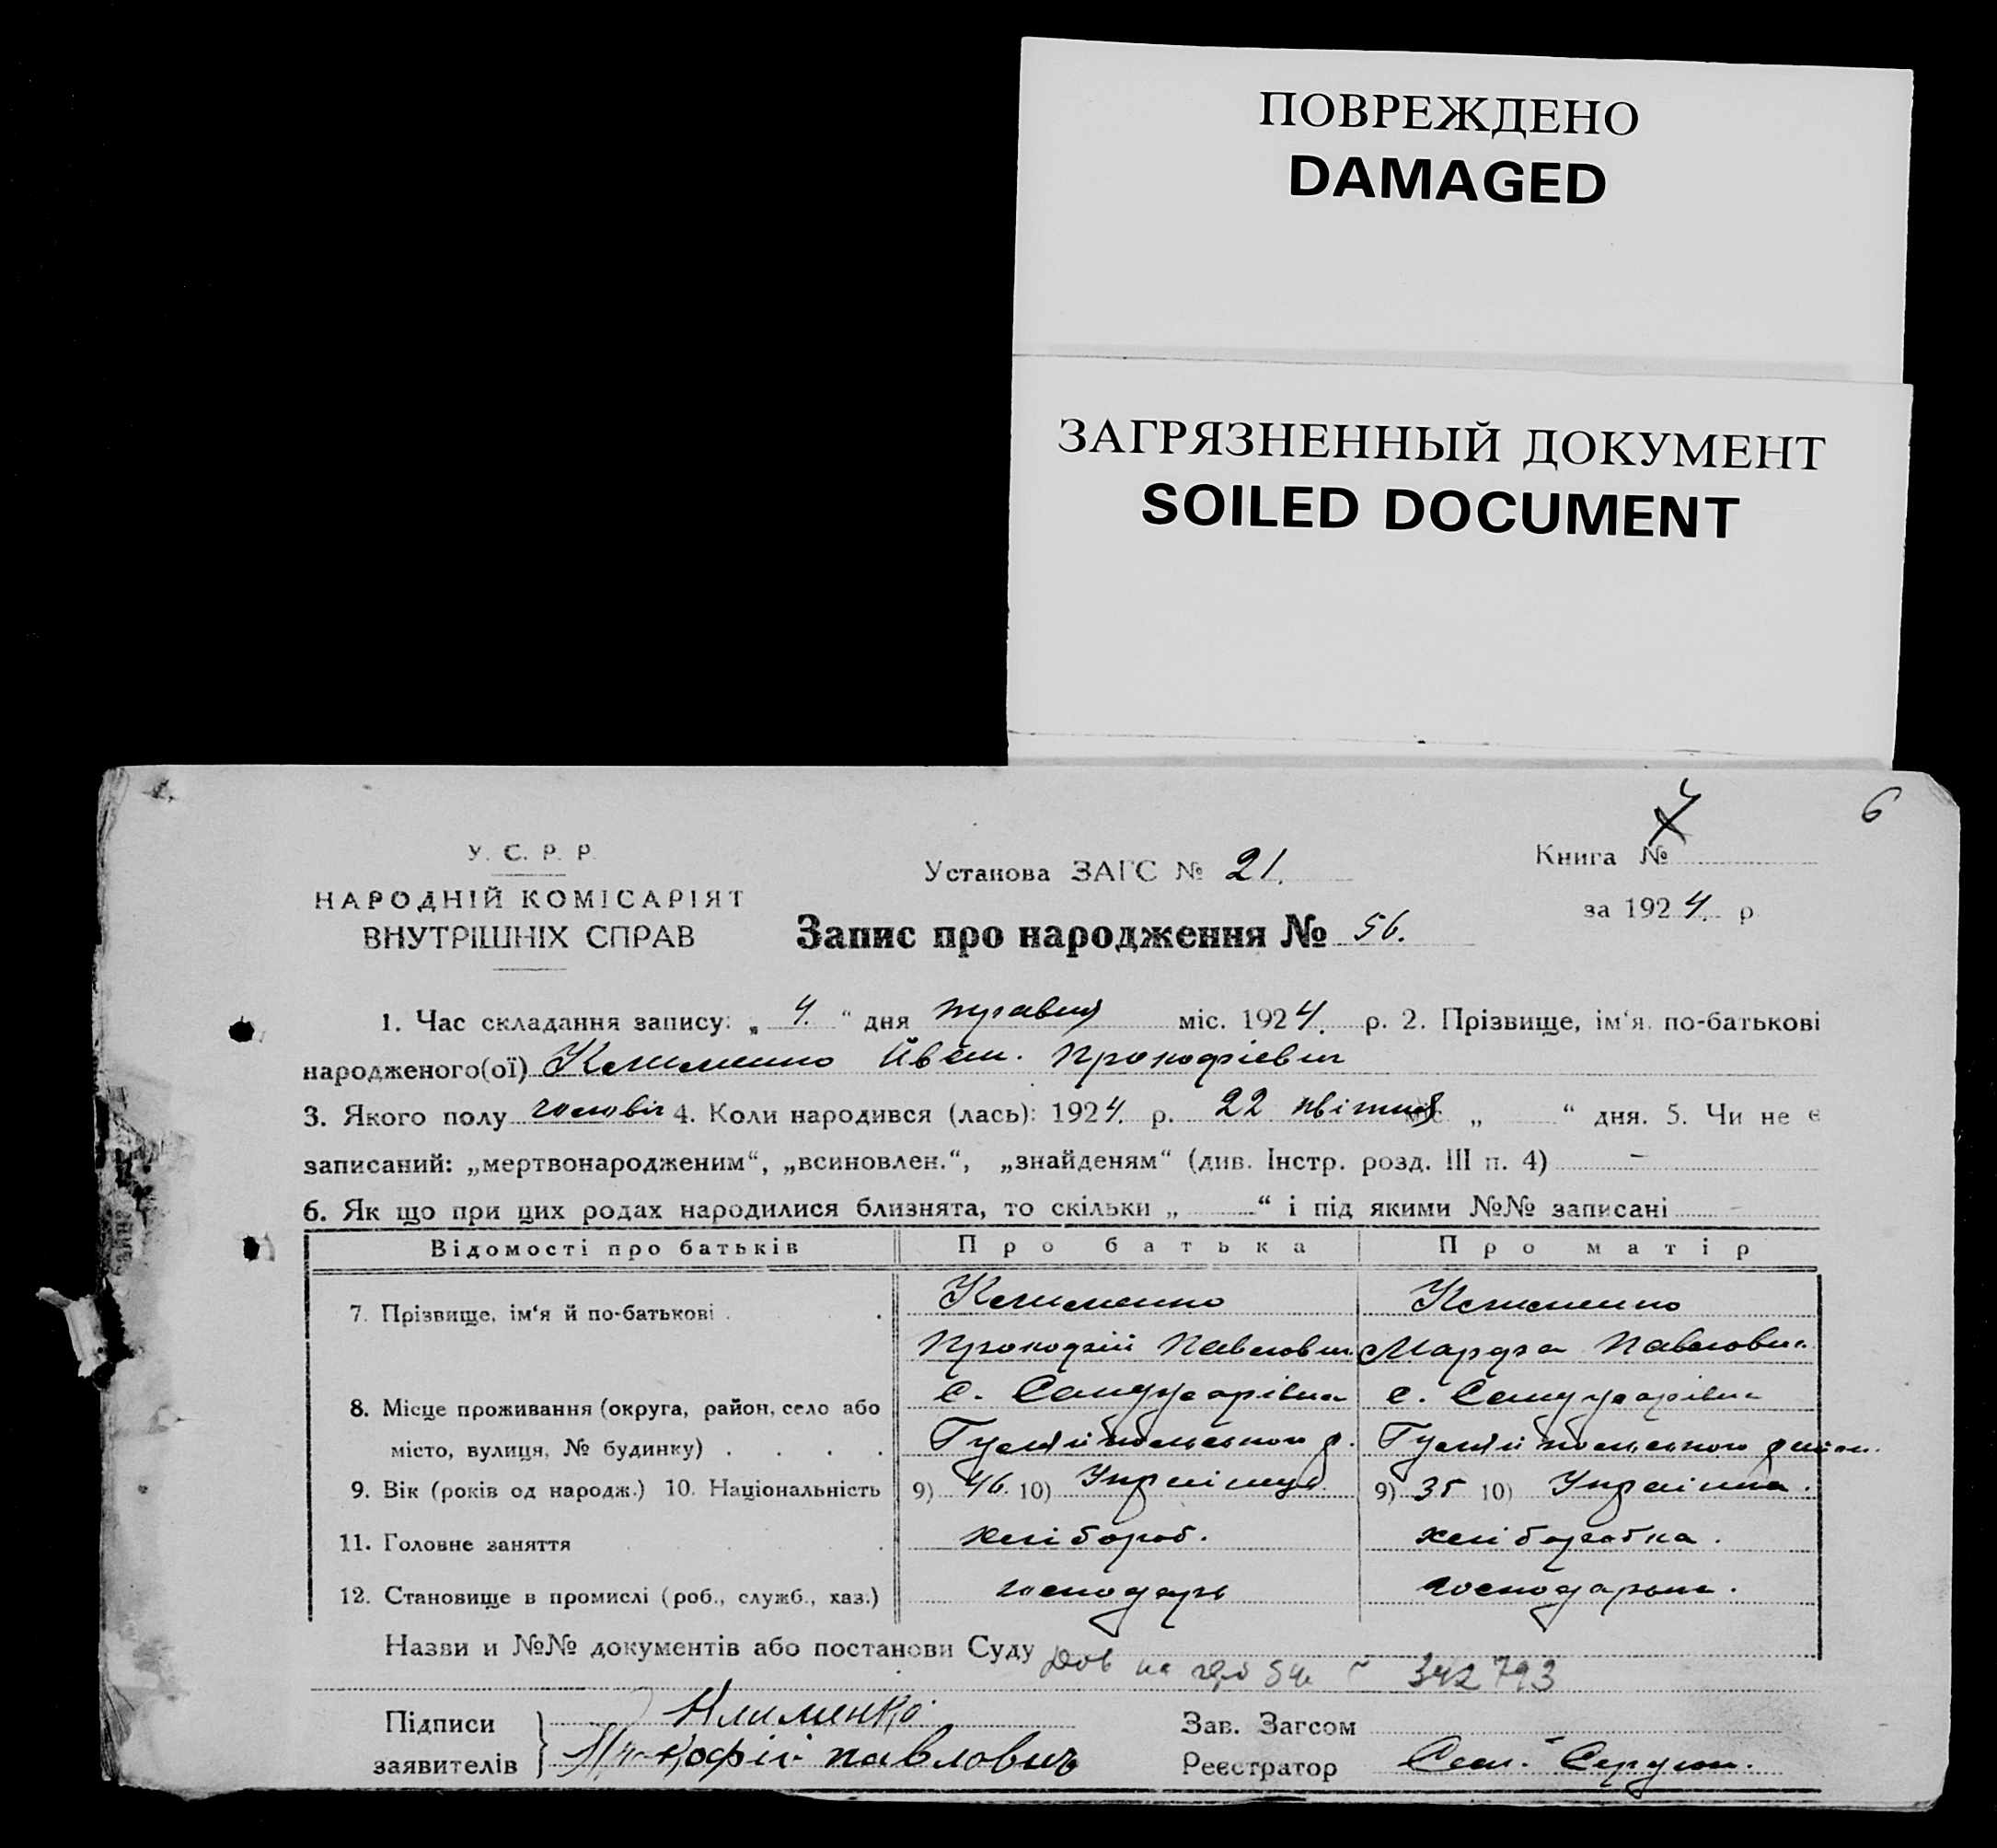 ПОВРЕЖДЕНО
DAMAGED
ЗАГРЯЗНЕННЫЙ ДОКУМЕНТ
SOILED DOCUMENT
6
У. С. Р. Р.
НАРОДНІЙ КОМІСАРІЯТ
ВНУТРІШНІХ СПРАВ
Установа ЗАГС № 21.
Книга №
за 1924. р
Запис про народження № 56.
1. Час складання запису: „ 4. “ дня травня міс. 1924. р. 2. Прізвище, ім‘я по-батькові
народженого(ої) Клименко Иван. Прокофієвич
3. Якого полу чоловіч 4. Коли народився (лась): 1924. р. 22 квітня міс „ “ дня. 5. Чи не є
записаний: „мертвонародженим“, „всиновлен.“, „знайденям“ (див. Інстр. розд. III п. 4) -
6. Як що при цих родах народилися близнята, то скільки „ “ і під якими №№ записані -
Відомості про батьків Про батька Про матір
7. Прізвище, ім‘я й по-батькові Клименко Клименко
Прокофій Павлович Марфа Павлови.
8. Місце проживання (округа, район, село або с. с.
місто, вулиця, № будинку)
9. Вік (років од народж.) 10. Національність 9) 46. 10) Українець 9) 35 10) Українка.
11. Головне заняття хлібороб. хлібородка.
12. Становище в промислі (роб., служб., хаз.) господарь господарька.
Назви и №№ документів або постанови Суду Дов на 342793
Підписи Клименко Зав. Загсом
заявителів Прокофій павловичь Реєстратор